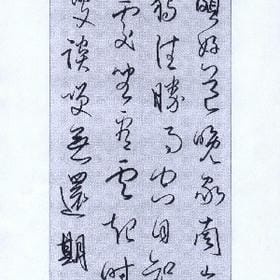 頗好道晚家南山
獨往勝事空自知
處坐看雲起時
叟談笑無還期